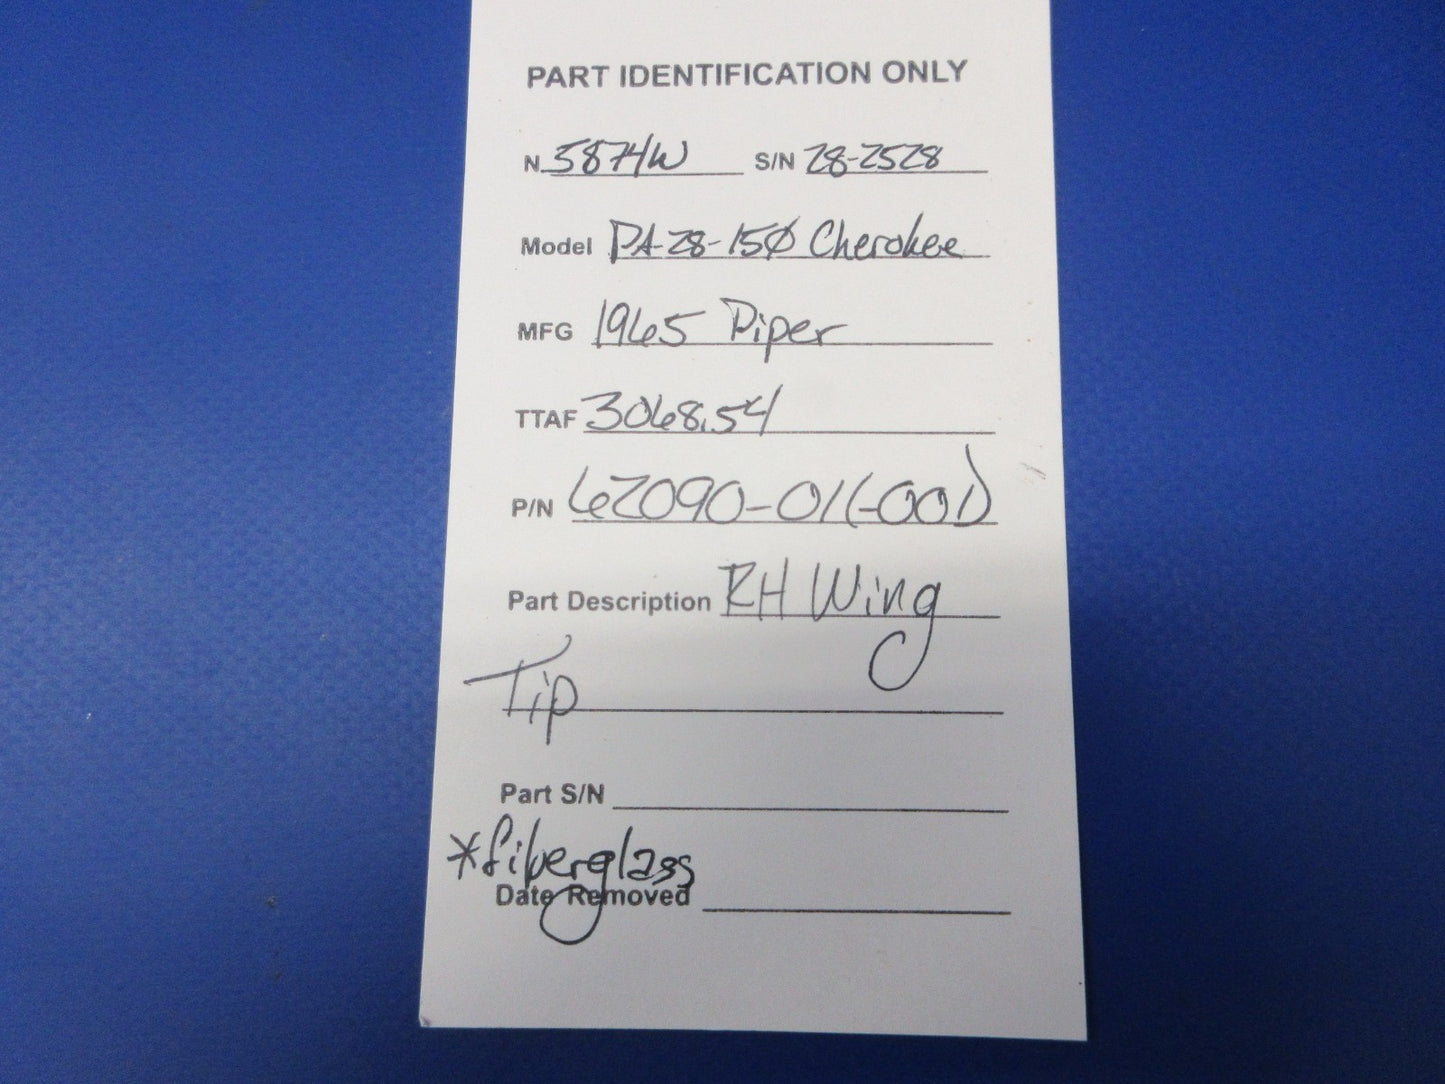 PART IDENTIFICATION ONLY
N 5874W S/N 28-2528
Model PA-28-150 Cherokee
MFG 1965 Piper
TTAF 3068.54
P/N 62090-01(-001)
Part Description RH Wing
Tip
Part S/N
*fiberglass
Date Removed